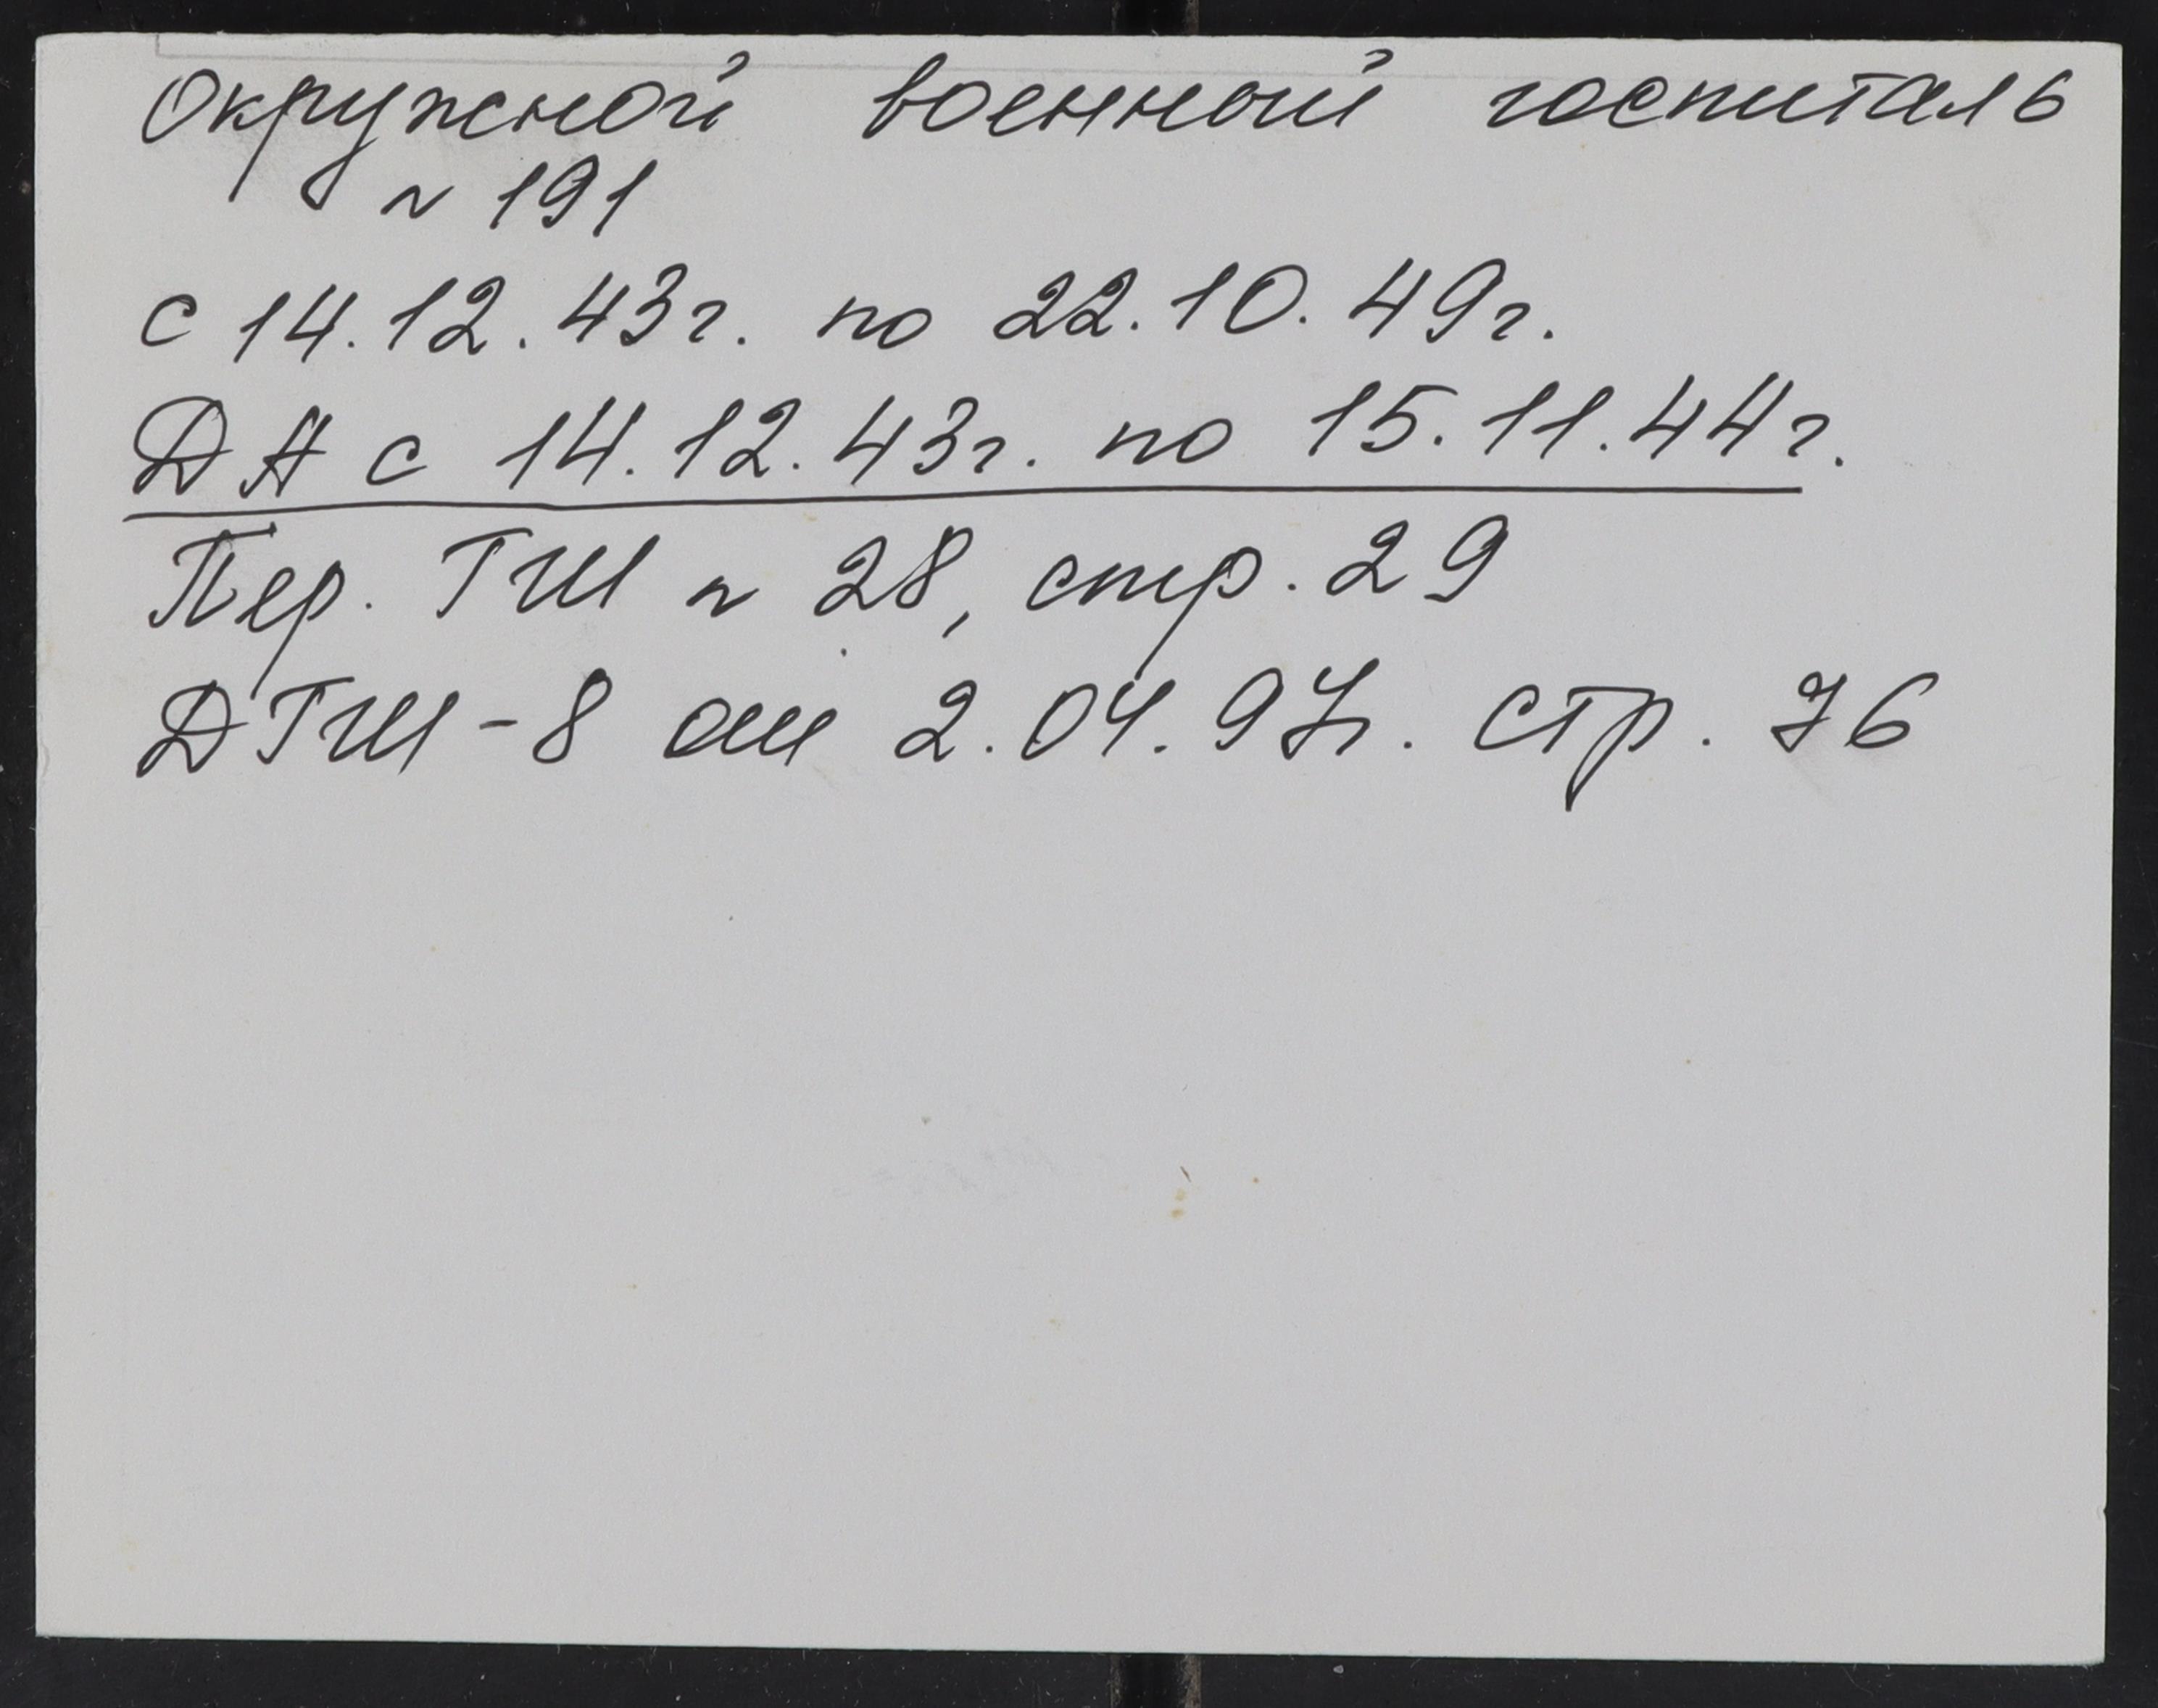 Окружной военный госпиталь
N 191
с 14.12.43г. по 22.10.49г.
ДА с 14.12.43г. по 15.11.44г.
Пер. ГШ N 28, стр. 29
ДГШ-8 от 2.04.97г. стр. 76